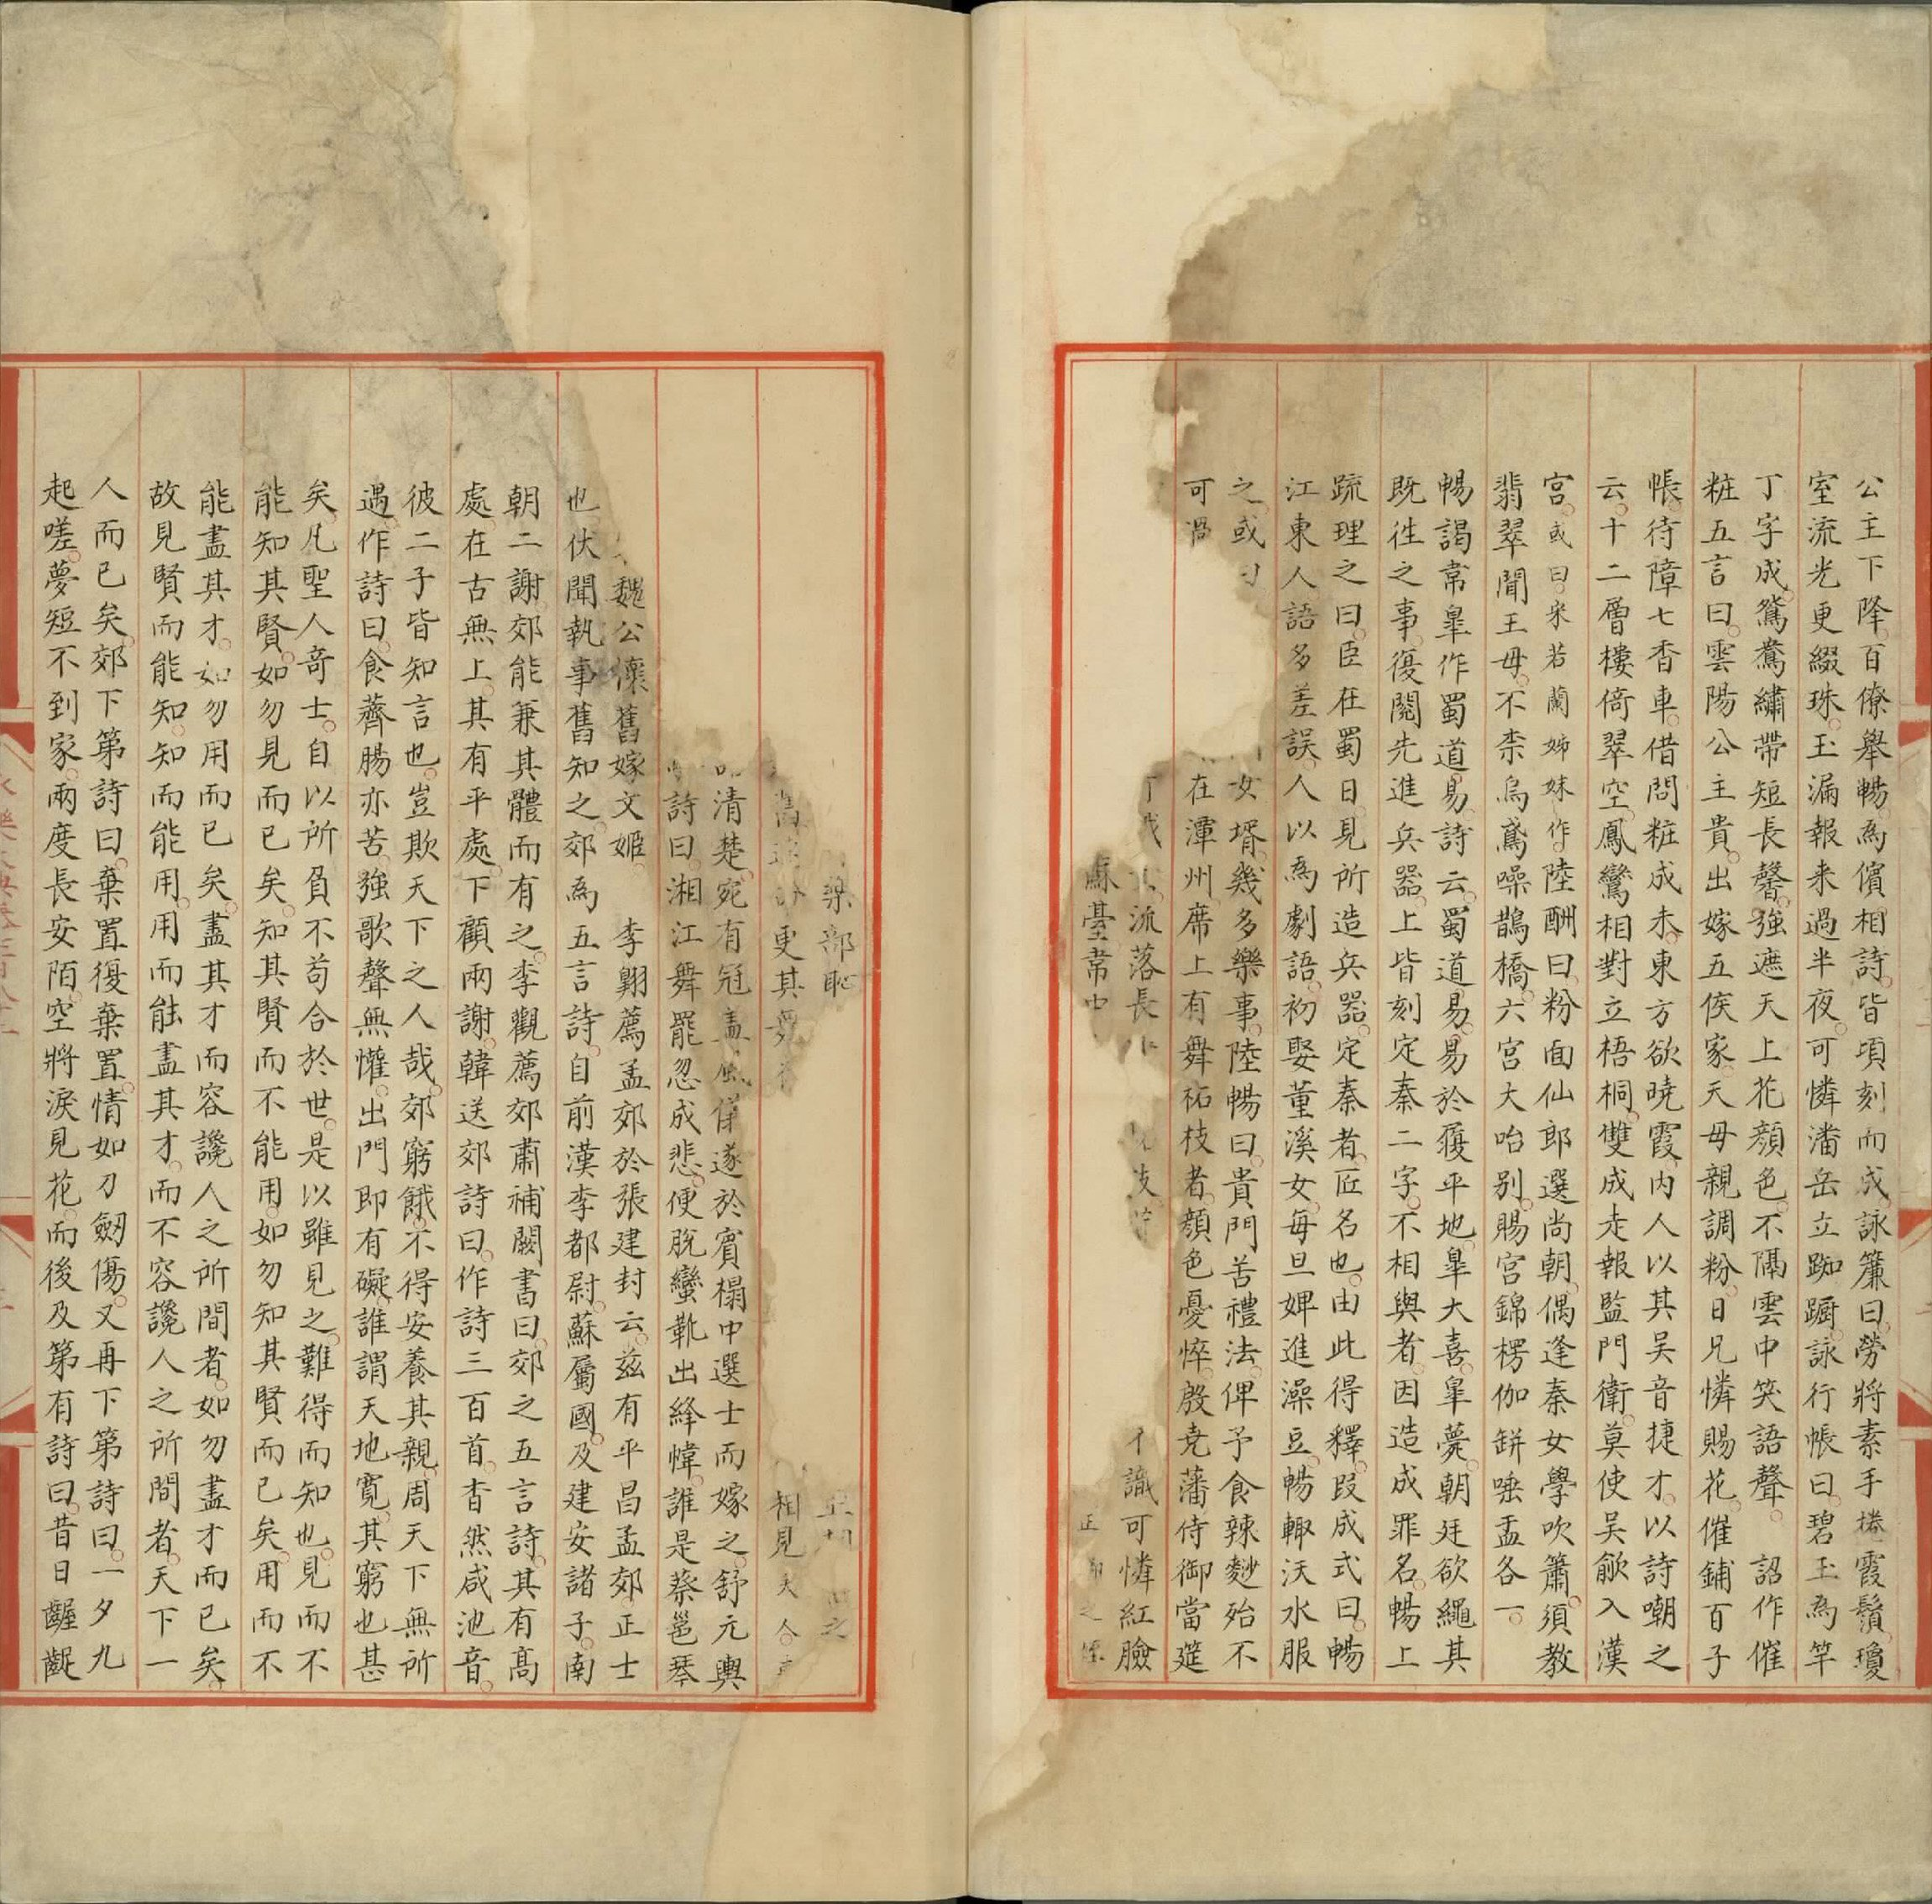 公主下降百僚舉暢為儐相詩皆頃刻而成詠簾曰勞將素手捲霞鬚瓊
室流光更綴珠玉漏報來過半夜可憐潘岳立踟躕詠行帳曰碧玉為竿
丁字成鴛鴦繡帶短長馨強遮天上花顏色不隔雲中笑語聲 詔作催
粧五言曰雲陽公主貴出嫁五侯家天母親調粉日兄憐賜花催鋪百子
帳待障七香車借問粧成未東方欲曉霞內人以其吳音捷才以詩嘲之
云十二層樓倚翠空鳳鸞相對立梧桐雙成走報監門衛莫使吳歈入漢
宮或曰宋若蘭姊妹作陸酬曰粉面仙郎選尚朝偶逢秦女學吹簫須教
翡翠聞王母不柰烏鳶噪鵲橋六宮大咍別賜宮錦楞伽缾唾盂各一
暢謁常臯作蜀道易詩云蜀道易易於履平地臯大喜臯薨朝廷欲繩其
既往之事復閱先進兵器上皆刻定秦二字不相與者因造成罪名暢上
疏理之曰臣在蜀日見所造兵器定秦者匠名也由此得釋段成式曰暢
江東人語多差誤人以為劇語初娶董溪女每旦婢進澡豆暢輙沃水服
之或曰 女壻幾多樂事陸暢曰貴門苦禮法俾予食辣麨殆不
可過 在潭州席上有舞柘枝者顏色憂悴殷尭藩侍御當筵
流落長 識可憐紅臉
蘇臺常中 正 之
樂部恥 之
更其舞 相見大人
清楚宛有冠盖風儀遂於賓榻中選士而嫁之舒元輿
詩曰湘江舞罷忽成悲便脫蠻靴出絳幃誰是蔡邕琴
魏公懷舊嫁文姬 李翺薦孟郊於張建封云茲有平昌孟郊正士
也伏聞執事舊知之郊為五言詩自前漢李都尉蘇屬國及建安諸子南
朝二謝郊能兼其體而有之李觀薦郊肅補闕書曰郊之五言詩其有高
處在古無上其有平處下顧兩謝韓送郊詩曰作詩三百首杳然咸池音
彼二子皆知言也豈欺天下之人哉郊窮餓不得安養其親周天下無所
遇作詩曰食薺腸亦苦強歌聲無懽出門即有礙誰謂天地寬其窮也甚
矣凡聖人奇士自以所負不苟合於世是以雖見之難得而知也見而不
能知其賢如勿見而已矣知其賢而不能用如勿知其賢而已矣用而不
能盡其才如勿用而已矣盡其才而容讒人之所間者如勿盡才而已矣
故見賢而能知知而能用用而能盡其才而不容讒人之所間者天下一
人而已矣郊下第詩曰棄置復棄置情如刀劒傷又再下第詩曰一夕九
起嗟夢短不到家兩度長安陌空將淚見花而後及第有詩曰昔日齷齪